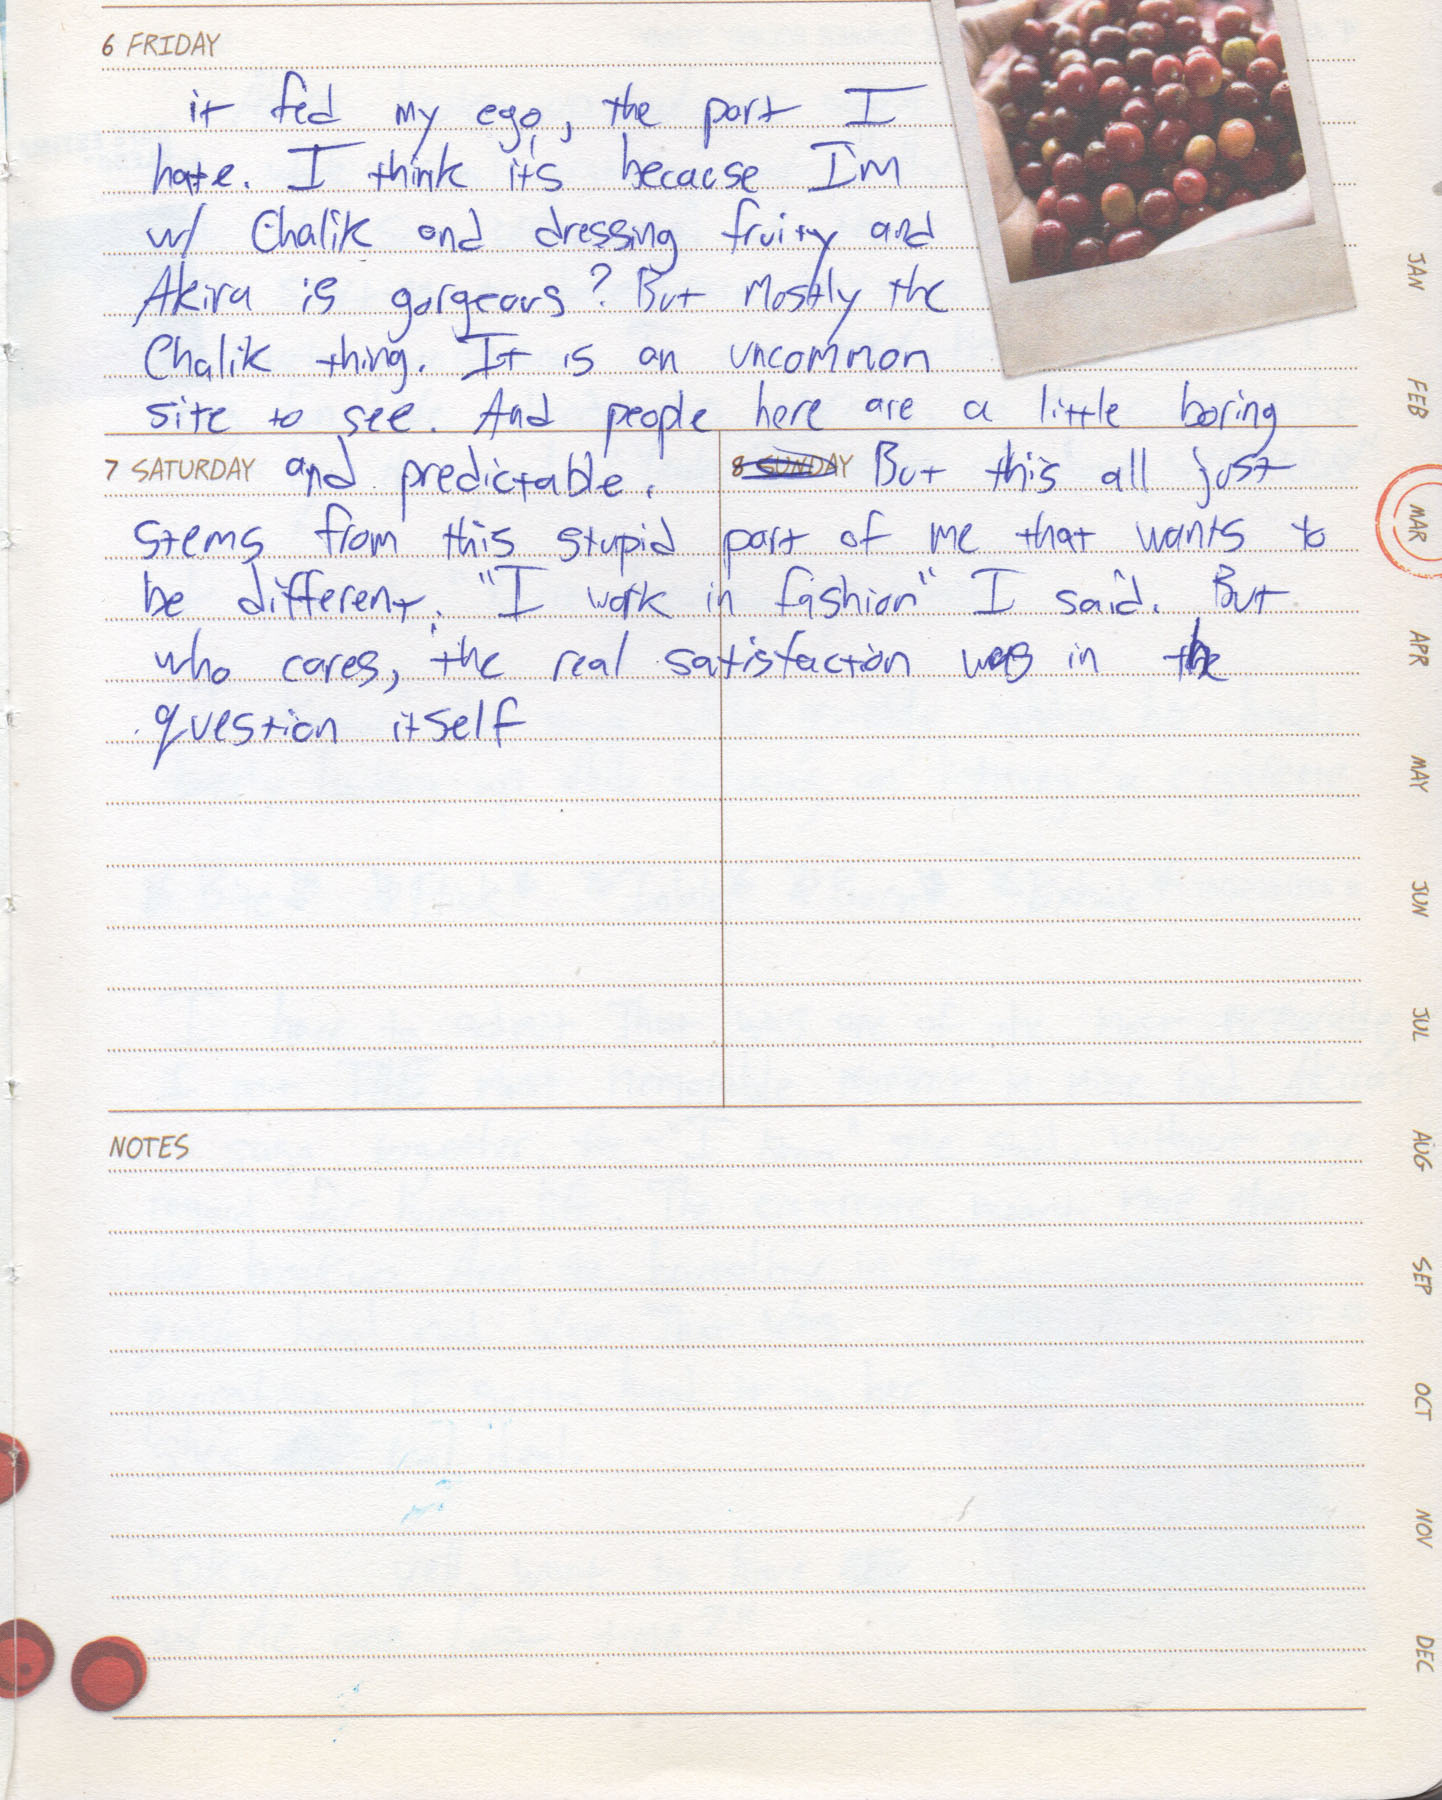 6 FRIDAY
it fed my ego, the part I
hate. I think it's because I'm
w/ Chalik and dressing fruity and
Akira is gorgeous? But mostly the
Chalik thing. It is an uncommon
site to see. And people here are a little boring
7 SATURDAY and predictable. 8 SUNDAY But this all just
stems from this stupid part of me that wants to
be different. "I work in fashion" I said. But
who cares, the real satisfaction was in the
question itself
NOTES
JAN
FEB
MAR
APR
MAY
JUN
JUL
AUG
SEP
OCT
NOV
DEC